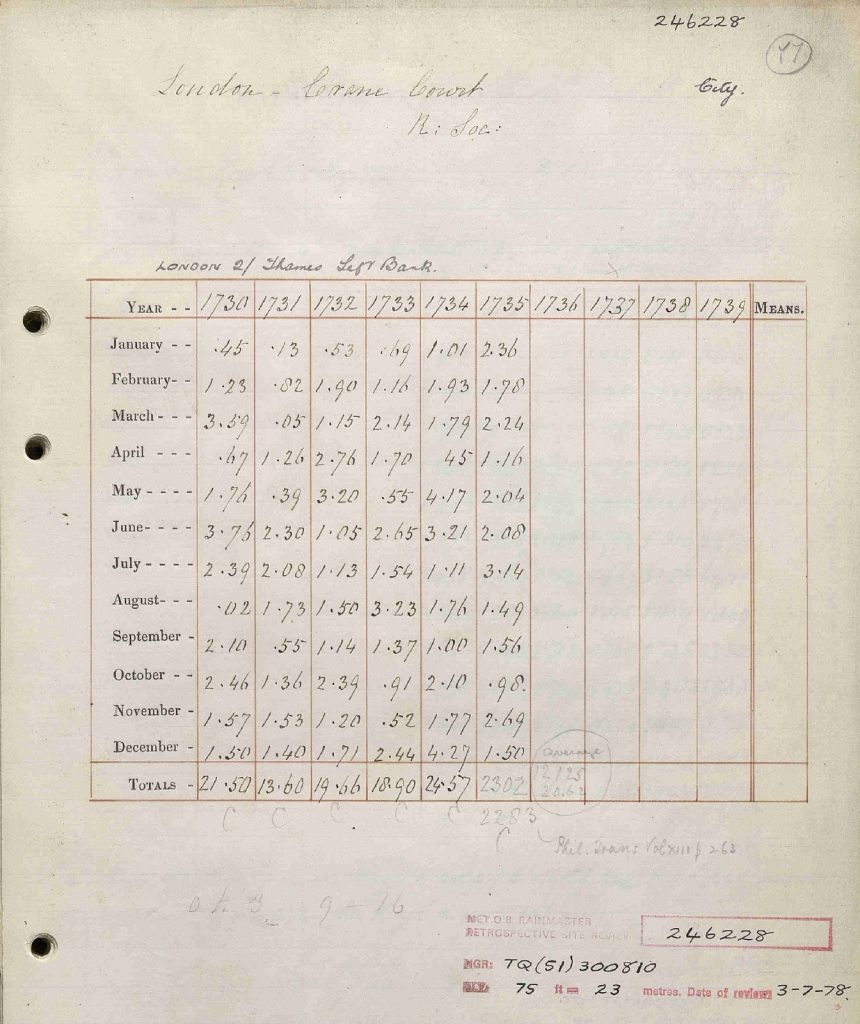 246228
City.
London - Crane Court
R: Soc:
LONDON 2/ Thames Left Bank.
YEAR - - 1730 1731 1732 1733 1734 1735 1736 1737 1738 1739 MEANS.
January - - .45 .13 .53 .69 1.01 2.36
February- - 1.23 .82 1.90 1.16 1.93 1.78
March - - - 3.59 .05 1.15 2.14 1.79 2.24
April - - - .67 1.26 2.76 1.70 45 1.16
May - - - - 1.76 .39 3.20 .55 4.17 2.04
June- - - - 3.76 2.30 1.05 2.65 3.21 2.08
July - - - - 2.39 2.08 1.13 1.54 1.11 3.14
August- - - .02 1.73 1.50 3.23 1.76 1.49
September - 2.10 .55 1.14 1.37 1.00 1.56
October - - 2.46 1.36 2.39 .91 2.10 .98.
November - 1.57 1.53 1.20 .52 1.77 2.69
December - 1.50 1.40 1.71 2.44 4.27 1.50
average
TOTALS - 21.50 13.60 19.66 18.90 24.57 2302
20.62
C C C C C 2283
C
Phil. Trans Vol xiii p 263
MET.O 8 RAINMASTER
RETROSPECTIVE SITE REVIEW 246228
NGR: TQ(51)300810
75 ft = 23 metres. Date of review: 3-7-78.